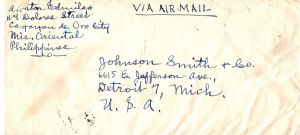 VIA AIR MAIL
Edmilao
Dolores Street
Cagayan de Oro City
Mis. Oriental
Philippines
Johnson Smith & Co.
6615 E. Jefferson Ave.,
Detroit 7, Mich.
U. S. A.